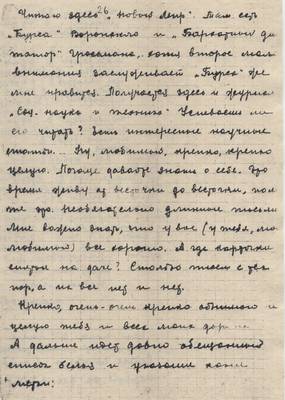 Читаю здесь "Новый Мир". Там есть
"Бурса" Воронского и "Бархатный дик
татор" Гроссмана, хотя второе мало
внимания заслуживает. "Бурса" же
мне нравится. Получается здесь и журнал
"Соц. наука и техника". Успеваешь ли
его читать? Есть интересные научные
статьи... Ну, любимый, крепко, крепко
целую. Почаще давайте знать о себе. Это
время живу от весточки до весточки, пом
же это. Необязательно длинные письма
Мне важно знать, что у вас (у тебя, мо
любимый) все хорошо. А где карточки
снятые на даче? Столько писем с тех
пор, а их все нет и нет.
Крепко, очень-очень крепко обнимаю и
целую тебя и всех моих
А дальше идет давно обещанный
список белья и указания